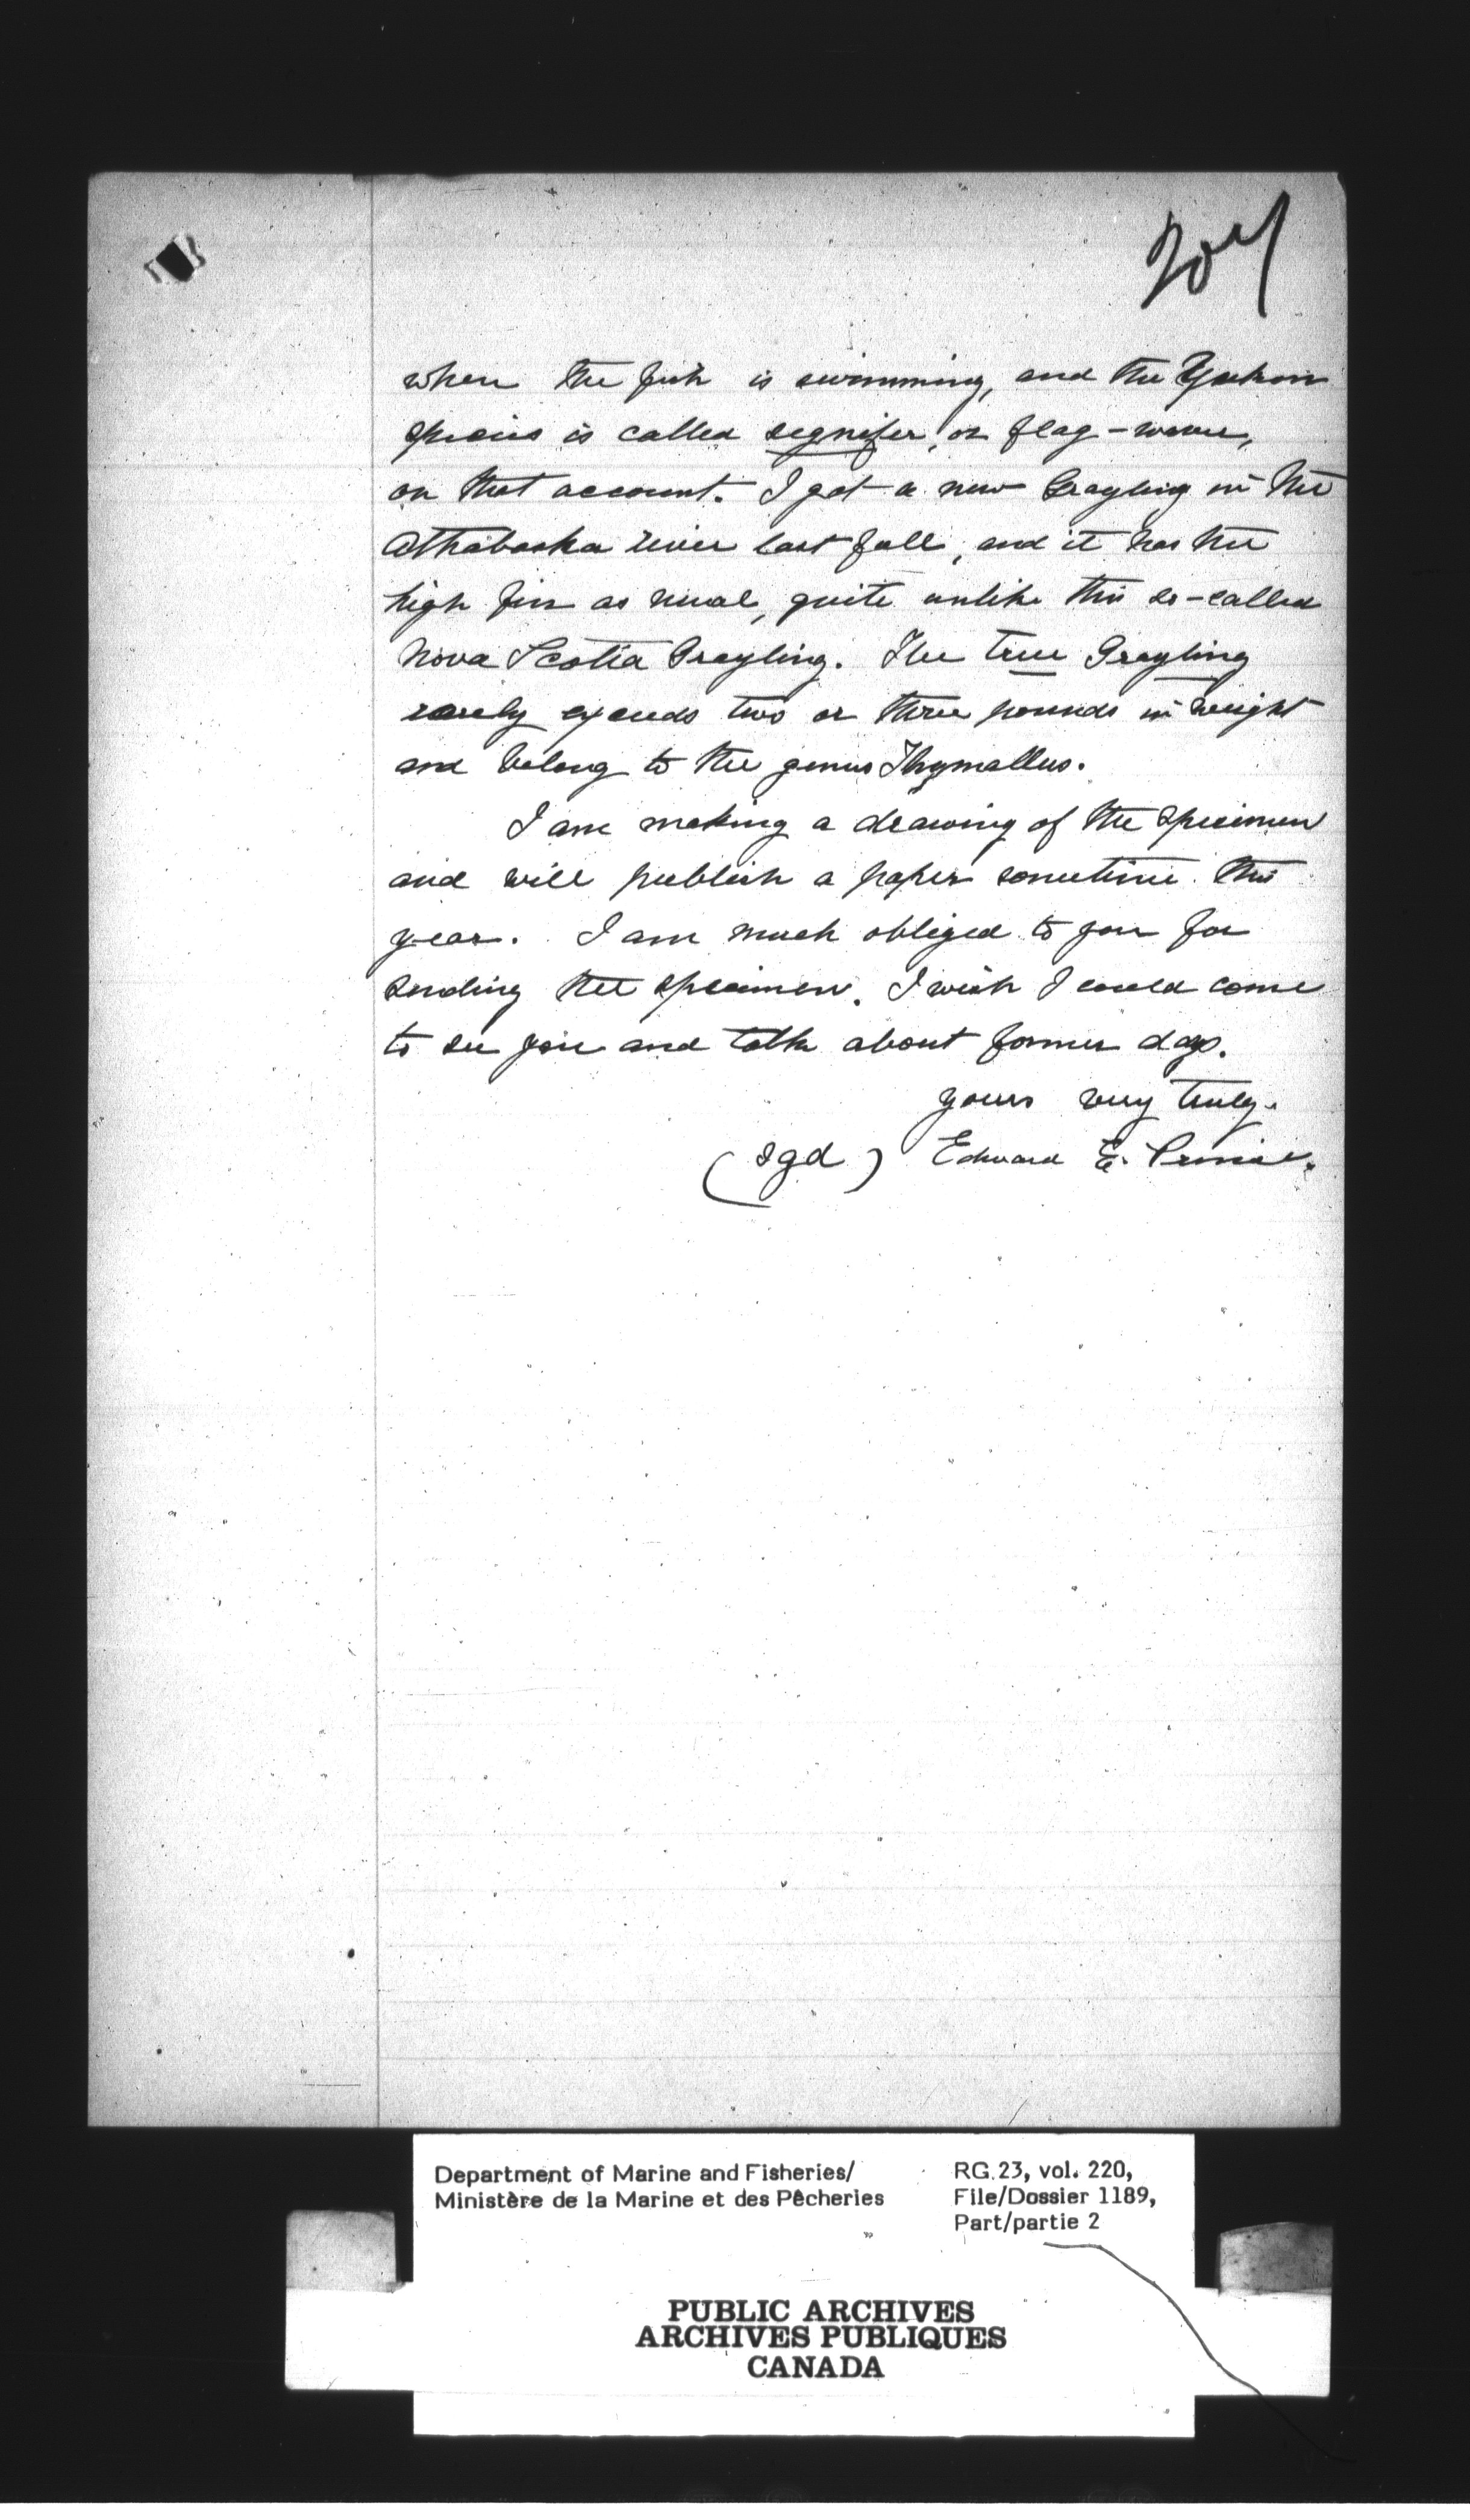 204
when the fish is swimming, and the Yukon
species is called signifer, or flag-waver,
on that account. I got a new Grayling in the
Athabaska river last fall, and it has the
high fin as usual, quite unlike this so-called
Nova Scotia Grayling. The true Grayling
rarely exceeds two or three pounds in weight
and belong to the genus Thymallus.
I am making a drawing of the specimen
and will publish a paper sometime this
year. I am much obliged to you for
sending the specimen. I wish I could come
to see you and talk about former days.
yours very truly.
(sgd) Edward E. Prince.
Department of Marine and Fisheries/
Ministère de la Marine et des Pêcheries
RG.23, vol. 220,
File/Dossier 1189,
Part/partie 2
PUBLIC ARCHIVES
ARCHIVES PUBLIQUES
CANADA